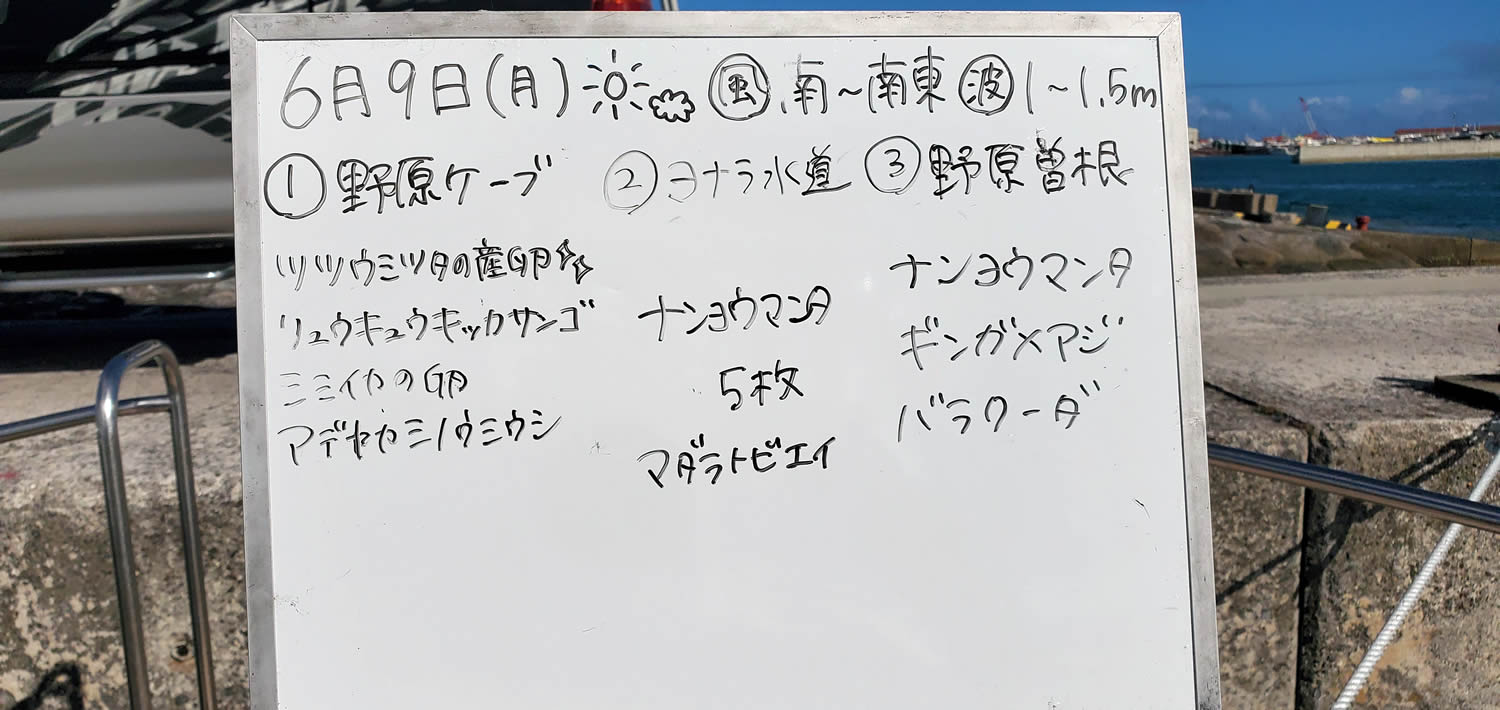 6月9日(月) 風 南~南東 波 1~1.5m
① 野原ケーブ
ツツウミヅタの産卵
リュウキュウキッカサンゴ
ミミイカの卵
アデヤカミノウミウシ
② ヨナラ水道
ナンヨウマンタ
5枚
マダラトビエイ
③ 野原曽根
ナンヨウマンタ
ギンガメアジ
バラクーダ